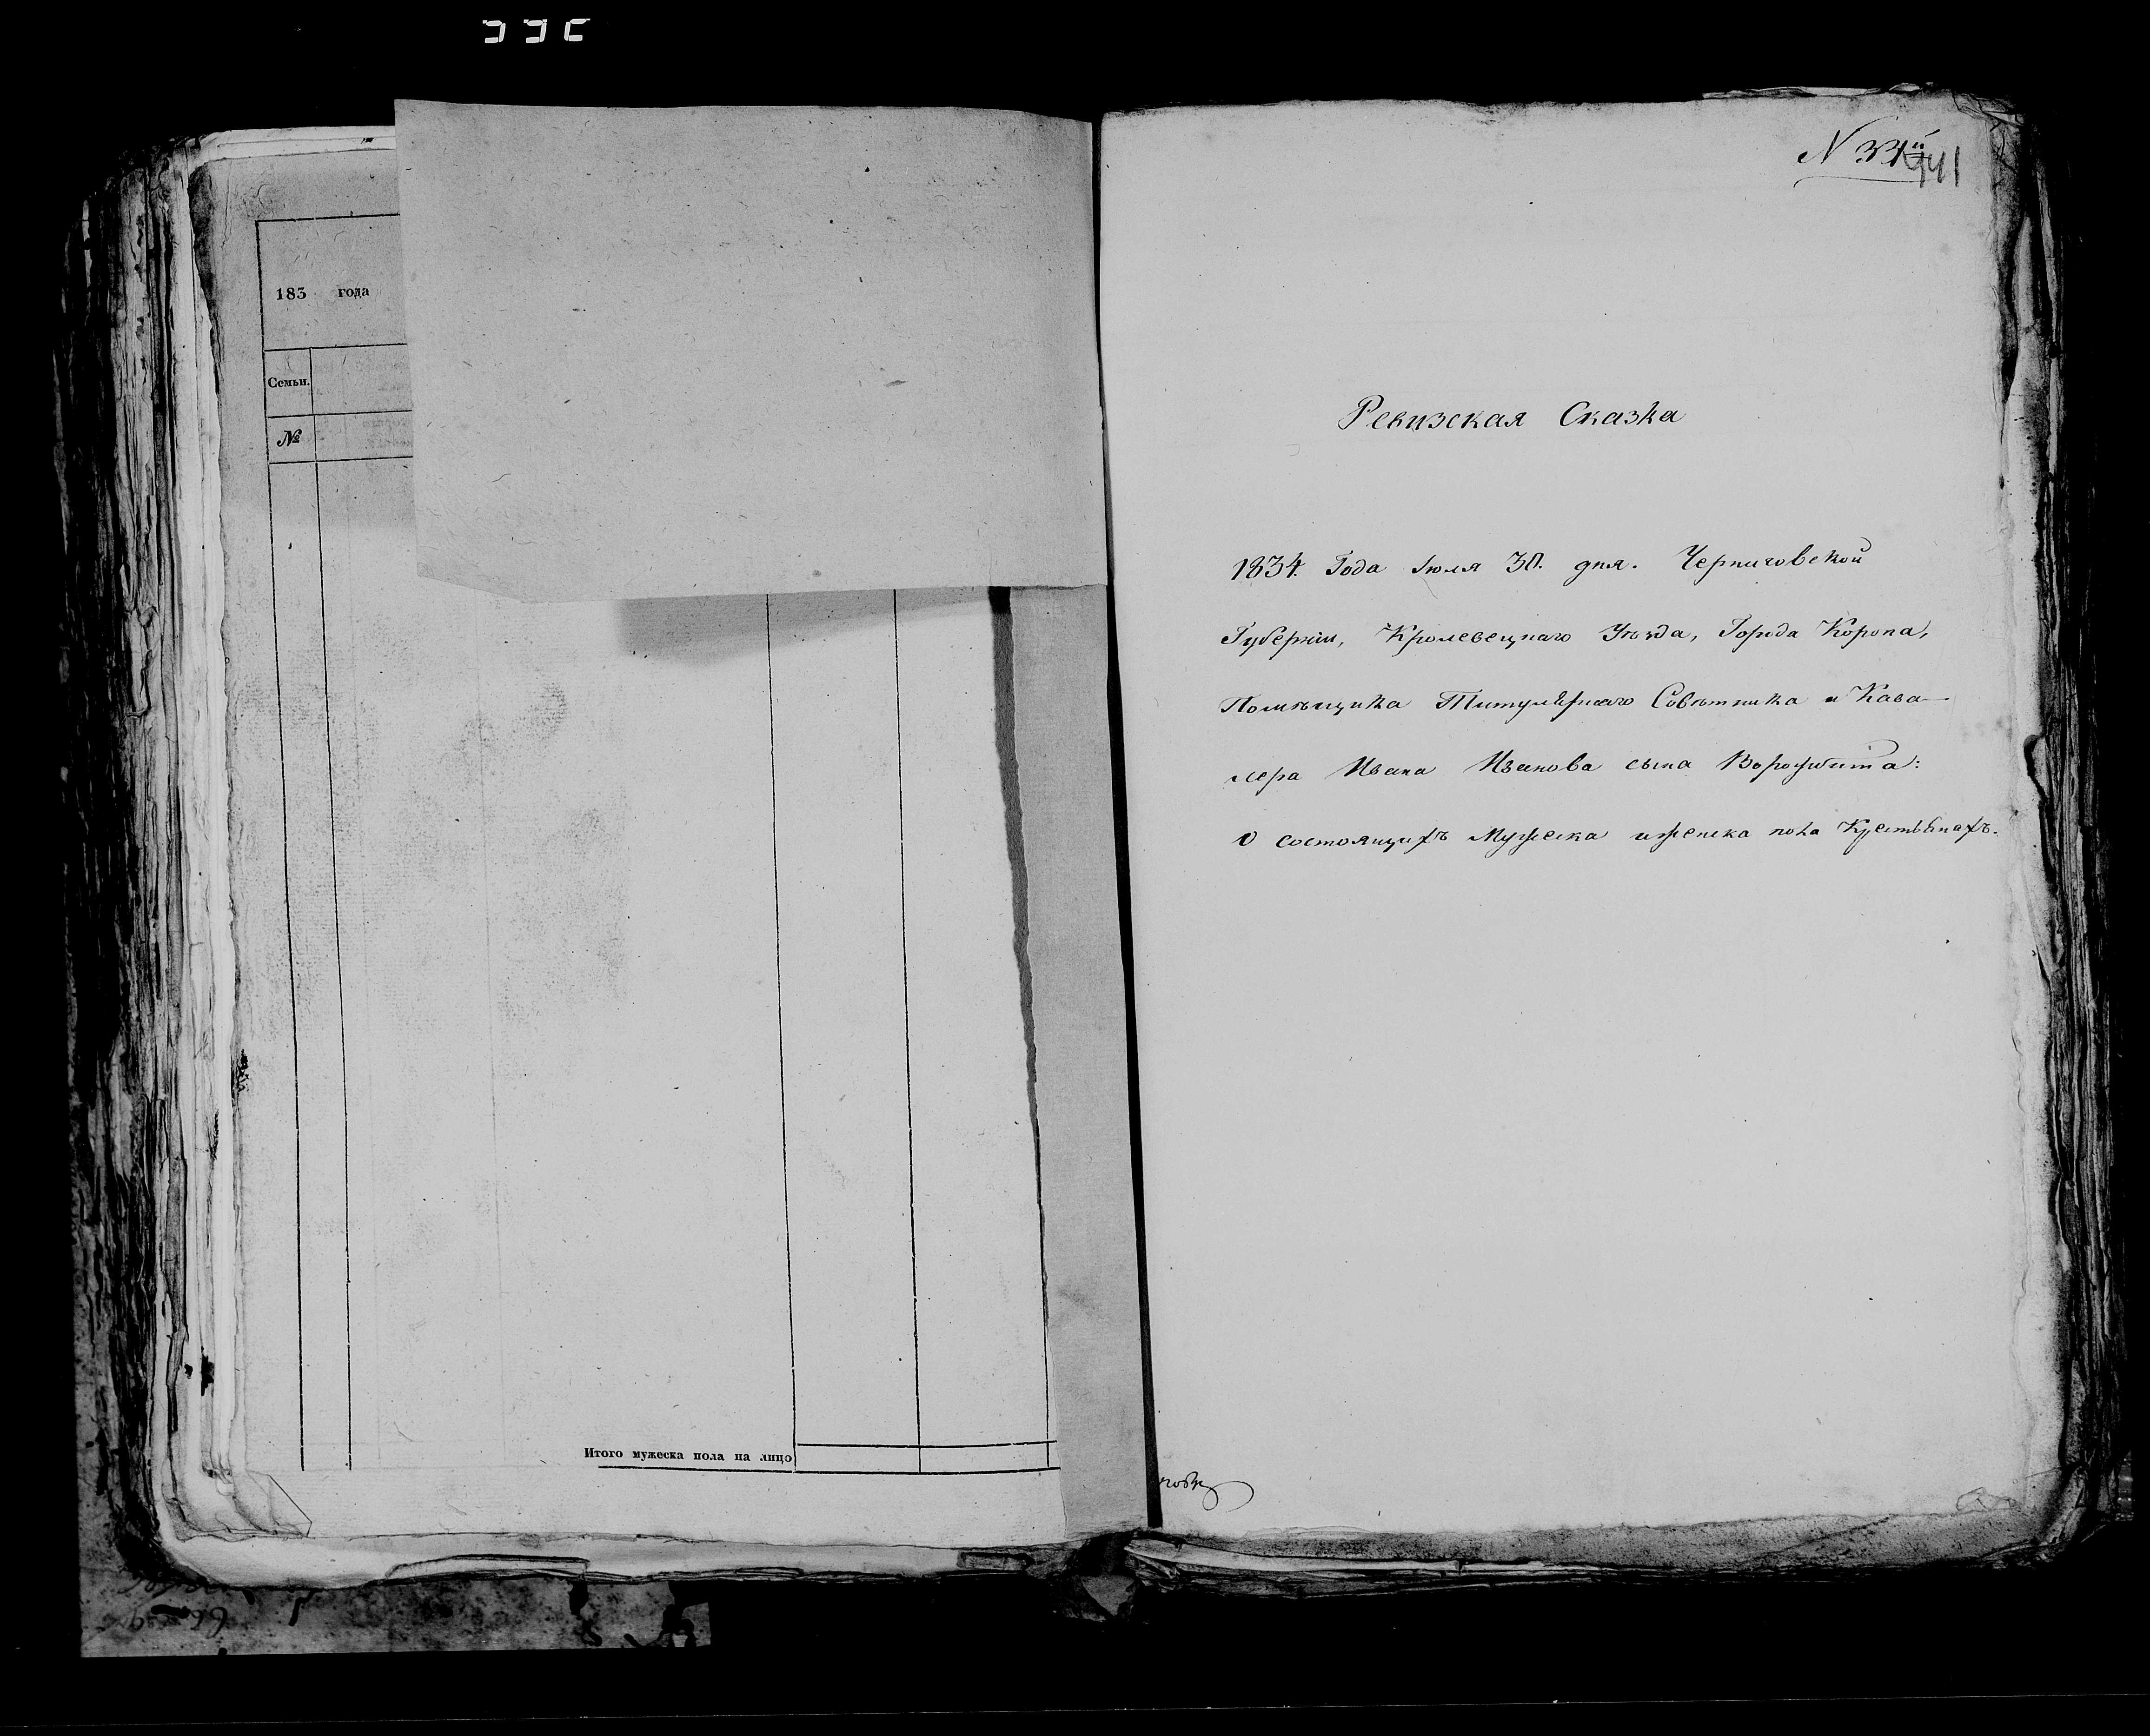 183 года
Семьи.
№
Итого мужеска пола на лицо
N 33й
441
Ревизская Сказка
1834. Года Іюля 30. дня. Черниговской
Губерніи, Кролевецкаго Уѣзда, Города Коропа,
Помѣщика Титулярнаго Совѣтника и Кава-
лера Ивана Иванова сына
О состоящихъ Мужеска и женска пола Крестьянахъ.